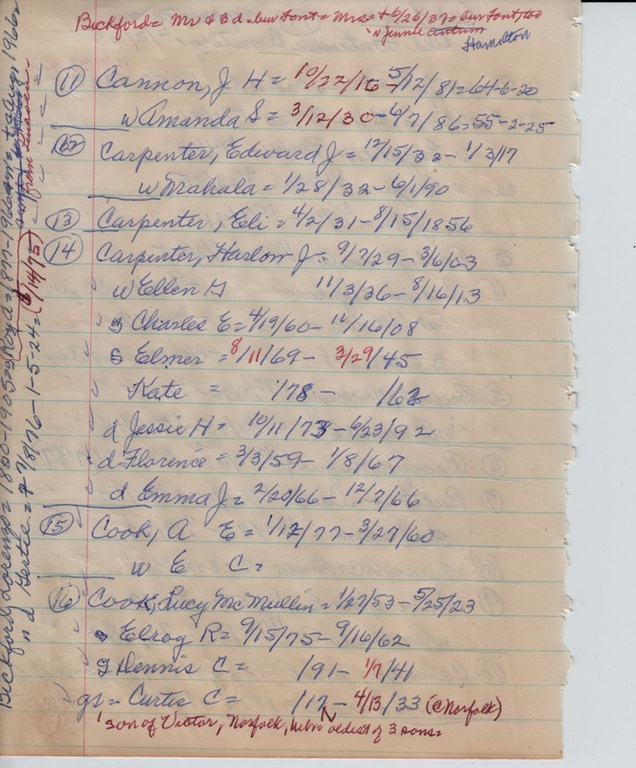 Bickford= Mr & 3 d = bur Font = Mrs = + 6/26/37 = bur Font, too
"d Jennie Hamilton
(11) Cannon, J H = 10/22/16 - 5/12/81 = 64-6-20
w Amanda S = 3/12/30 - 6/7/86 = 55-2-25
(12) Carpenter, Edward J = 12/15/32 - 1/3/17
w Mahala = 1/28/32 - 6/1/90
(13) Carpenter, Eli = 4/2/31 - 8/15/1856
(14) Carpenter, Harlow J = 9/7/29 - 3/6/03
w Ellen G 11/3/36 - 8/16/13
s Charles E = 4/19/60 - 11/16/08
s Elmer = 8/11/69 - 3/29/45
Kate = /78 - /62
d Jessie H = 10/11/73 - 6/23/92
d Florence = 3/3/59 - 1/8/67
d Emma J = 2/20/66 - 12/7/66
(15) Cook, A E = 1/12/77 - 3/27/60
w E C =
16 Cook, Lucy McMullin = 1/27/53 - 5/25/23
s Elroy R = 9/15/75 - 9/16/62
s Dennis C = /91 - 1/7/41
gs = Curtis C = /17 - 4/13/33 (@ Norfolk)
'son of Victor, Norfolk, oldest of 3 sons.
Bickford, Lorenzo = 1860-1905 = s Roy a = 1897-1966
"d Gertie = + 7/8/76 - 1-5-24 = (8/14/75)